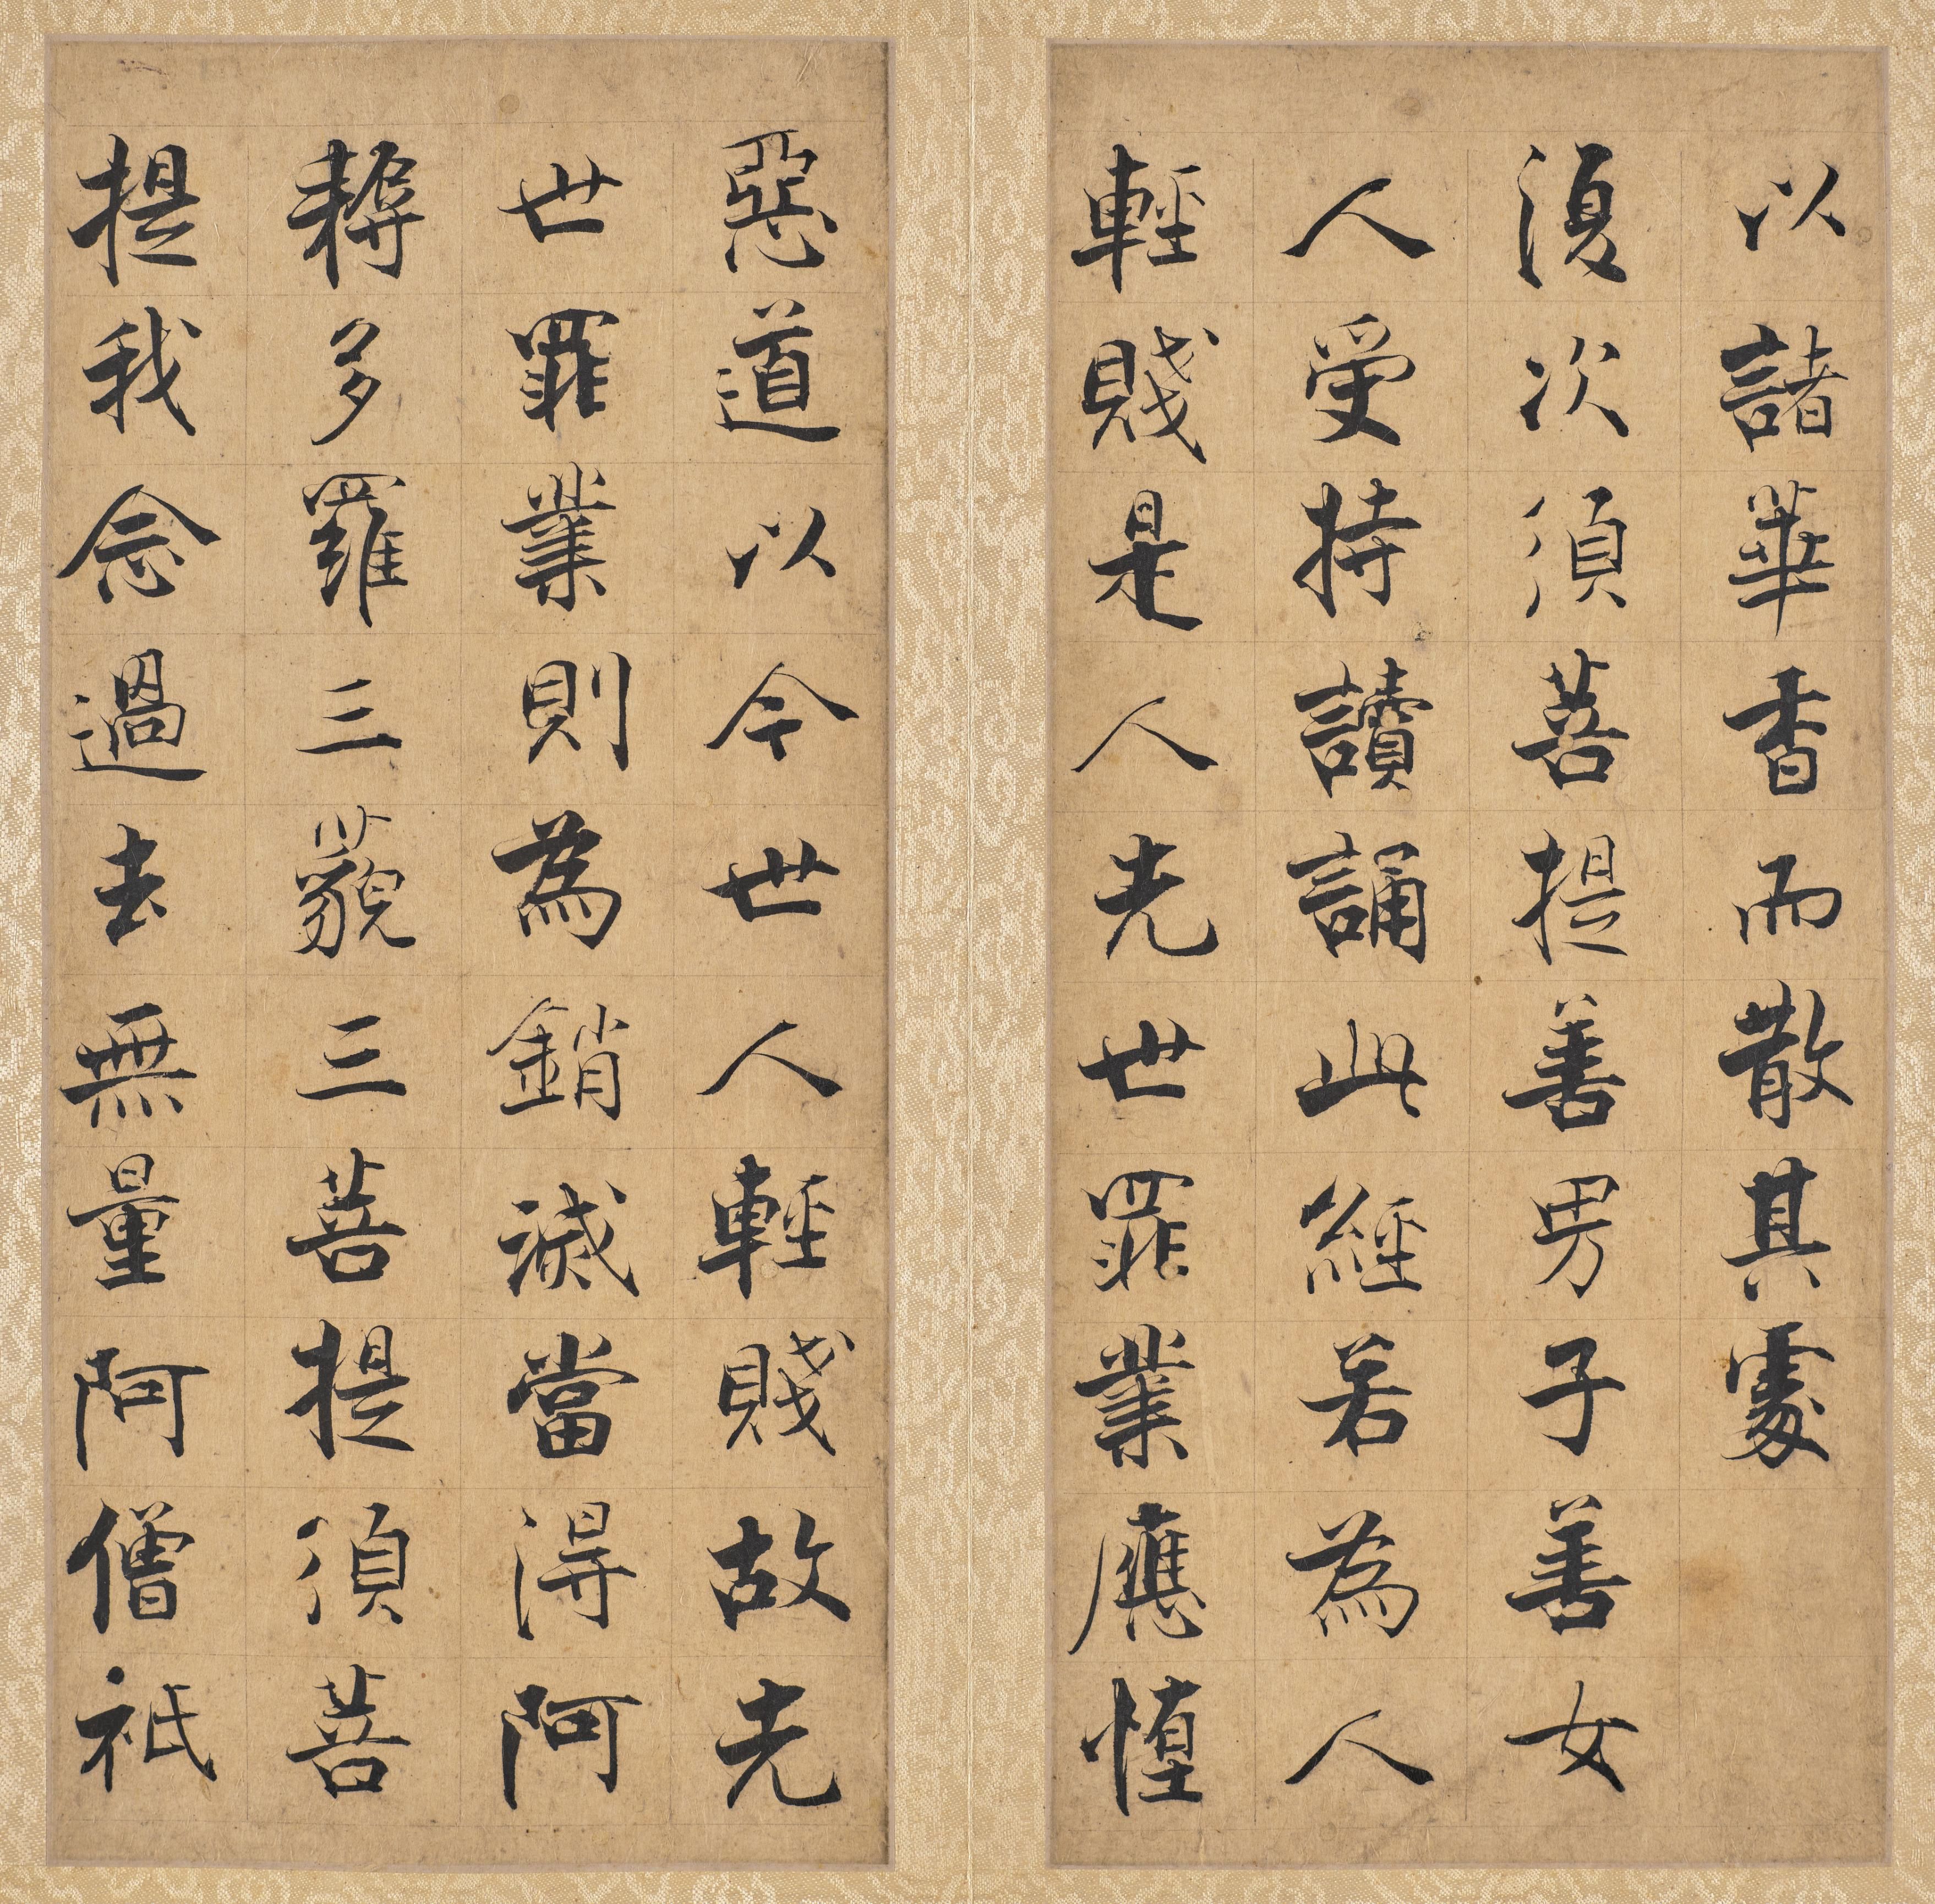 以諸華香而散其處
復次須菩提善男子善女
人受持讀誦此經若為人
輕賤是人先世罪業應墮
惡道以今世人輕賤故先
世罪業則為銷滅當得阿
耨多羅三藐三菩提須菩
提我念過去無量阿僧祇